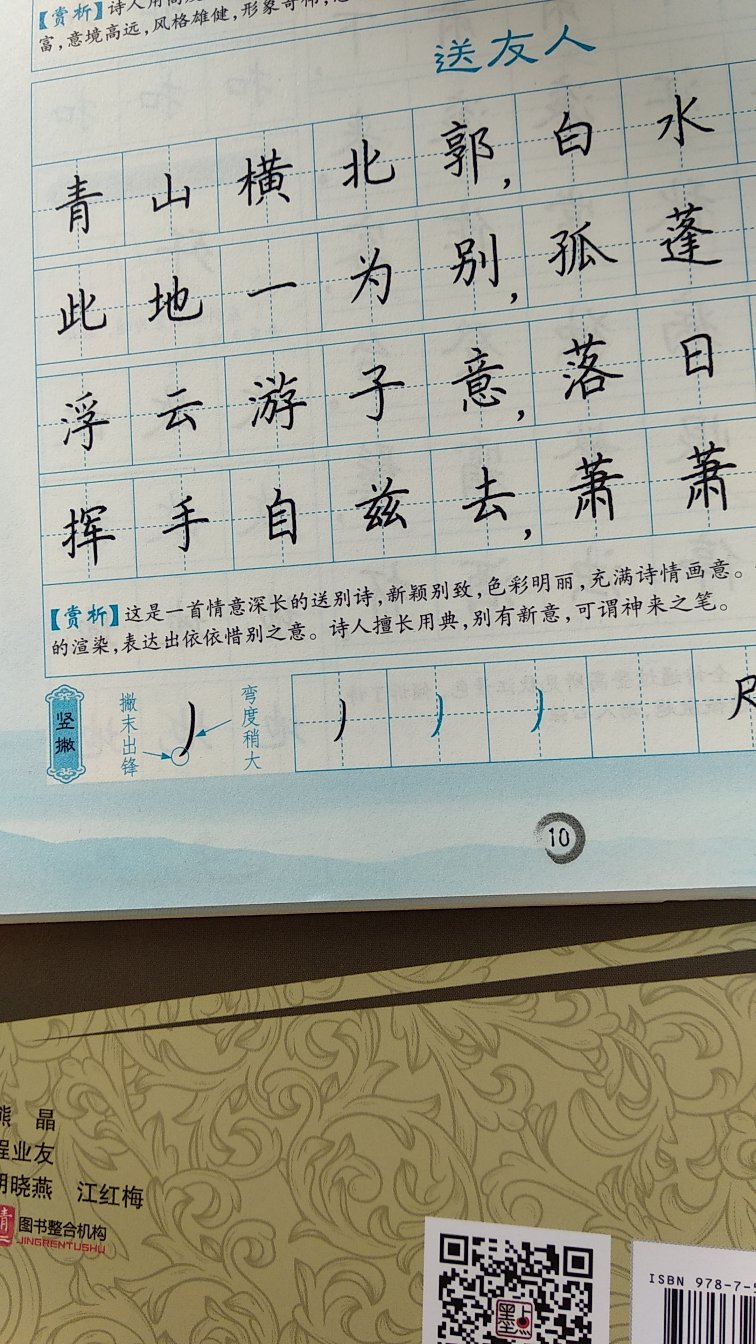 【赏析】诗人用高度
富，意境高远，风格雄健，形象奇伟，
送友人
青山横北郭，白水
此地一为别，孤蓬
浮云游子意，落日
挥手自兹去，萧萧
【赏析】这是一首情意深长的送别诗，新颖别致，色彩明丽，充满诗情画意。
的渲染，表达出依依惜别之意。诗人擅长用典，别有新意，可谓神来之笔。
竖撇
撇末出锋
弯度稍大
10
熊 晶
程业友
胡晓燕 江红梅
图书整合机构
JINGRENTUSHU
墨点
ISBN 978-7-5